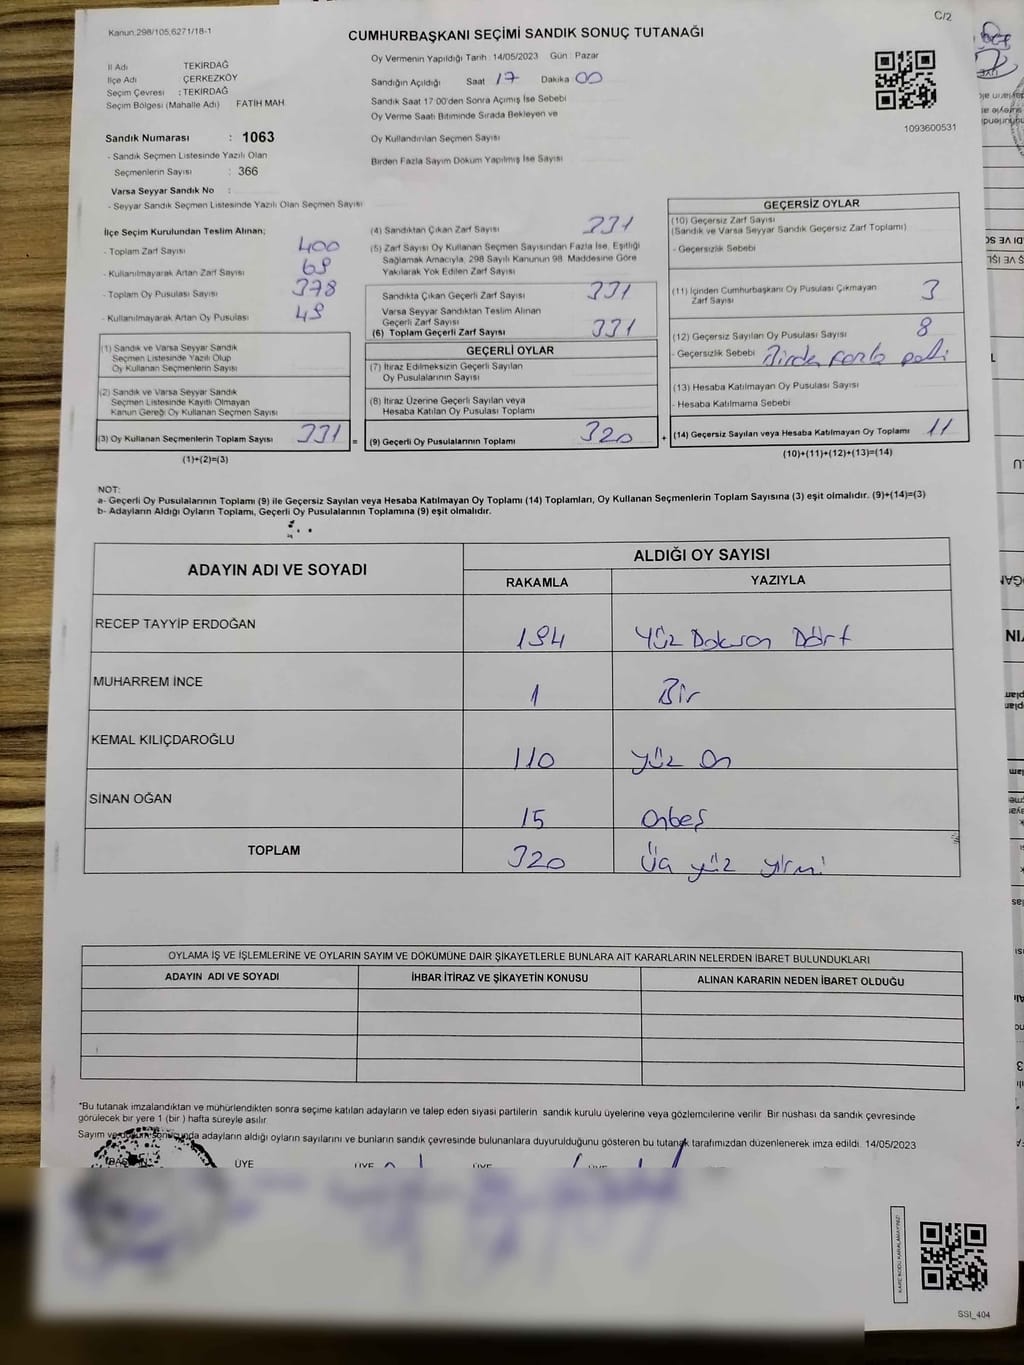 Kanun:298/105,6271/18-1
C/2
CUMHURBAŞKANI SEÇİMİ SANDIK SONUÇ TUTANAĞI
İl Adı TEKİRDAĞ
İlçe Adı ÇERKEZKÖY
Seçim Çevresi : TEKİRDAĞ
Seçim Bölgesi (Mahalle Adı) FATİH MAH.
Sandık Numarası : 1063
- Sandık Seçmen Listesinde Yazılı Olan
Seçmenlerin Sayısı : 366
Varsa Seyyar Sandık No :
- Seyyar Sandık Seçmen Listesinde Yazılı Olan Seçmen Sayısı
Oy Vermenin Yapıldığı Tarih 14/05/2023 Gün : Pazar
Sandığın Açıldığı Saat 17 Dakika 00
Sandık Saat 17:00'den Sonra Açımış İse Sebebi
Oy Verme Saati Bitiminde Sırada Bekleyen ve
Oy Kullandırılan Seçmen Sayısı
Birden Fazla Sayım Döküm Yapılmış İse Sayısı
1093600531
İlçe Seçim Kurulundan Teslim Alınan;
- Toplam Zarf Sayısı 400
- Kullanılmayarak Artan Zarf Sayısı 69
- Toplam Oy Pusulası Sayısı 378
- Kullanılmayarak Artan Oy Pusulası 49
(1) Sandık ve Varsa Seyyar Sandık
Seçmen Listesinde Yazılı Olup
Oy Kullanan Seçmenlerin Sayısı
(2) Sandık ve Varsa Seyyar Sandık
Seçmen Listesinde Kayıtlı Olmayan
Kanun Gereği Oy Kullanan Seçmen Sayısı
(3) Oy Kullanan Seçmenlerin Toplam Sayısı 331 =
(1)+(2)=(3)
(4) Sandıktan Çıkan Zarf Sayısı 331
(5) Zarf Sayısı Oy Kullanan Seçmen Sayısından Fazla İse, Eşitliği
Sağlamak Amacıyla, 298 Sayılı Kanunun 98. Maddesine Göre
Yakılarak Yok Edilen Zarf Sayısı
Sandıkta Çıkan Geçerli Zarf Sayısı 331
Varsa Seyyar Sandıktan Teslim Alınan
Geçerli Zarf Sayısı
(6) Toplam Geçerli Zarf Sayısı 331
GEÇERLİ OYLAR
(7) İtiraz Edilmeksizin Geçerli Sayılan
Oy Pusulalarının Sayısı
(8) İtiraz Üzerine Geçerli Sayılan veya
Hesaba Katılan Oy Pusulası Toplamı
(9) Geçerli Oy Pusulalarının Toplamı 320 +
GEÇERSİZ OYLAR
(10) Geçersiz Zarf Sayısı
(Sandık ve Varsa Seyyar Sandık Geçersiz Zarf Toplamı)
- Geçersizlik Sebebi
(11) İçinden Cumhurbaşkanı Oy Pusulası Çıkmayan
Zarf Sayısı 3
(12) Geçersiz Sayılan Oy Pusulası Sayısı 8
- Geçersizlik Sebebi Birden fazla
(13) Hesaba Katılmayan Oy Pusulası Sayısı
- Hesaba Katılmama Sebebi
(14) Geçersiz Sayılan veya Hesaba Katılmayan Oy Toplamı 11
(10)+(11)+(12)+(13)=(14)
NOT:
a- Geçerli Oy Pusulalarının Toplamı (9) ile Geçersiz Sayılan veya Hesaba Katılmayan Oy Toplamı (14) Toplamları, Oy Kullanan Seçmenlerin Toplam Sayısına (3) eşit olmalıdır. (9)+(14)=(3)
b- Adayların Aldığı Oyların Toplamı, Geçerli Oy Pusulalarının Toplamına (9) eşit olmalıdır.
ADAYIN ADI VE SOYADI
ALDIĞI OY SAYISI
RAKAMLA YAZIYLA
RECEP TAYYİP ERDOĞAN 194 Yüz Doksan Dört
MUHARREM İNCE 1 Bir
KEMAL KILIÇDAROĞLU 110 yüz On
SİNAN OĞAN 15 Onbeş
TOPLAM 320 Üç yüz yirmi
OYLAMA İŞ VE İŞLEMLERİNE VE OYLARIN SAYIM VE DÖKÜMÜNE DAİR ŞİKAYETLERLE BUNLARA AİT KARARLARIN NELERDEN İBARET BULUNDUKLARI
ADAYIN ADI VE SOYADI İHBAR İTİRAZ VE ŞİKAYETİN KONUSU ALINAN KARARIN NEDEN İBARET OLDUĞU
*Bu tutanak imzalandıktan ve mühürlendikten sonra seçime katılan adayların ve talep eden siyasi partilerin sandık kurulu üyelerine veya gözlemcilerine verilir. Bir nüshası da sandık çevresinde
görülecek bir yere 1 (bir) hafta süreyle asılır.
Sayım ve döküm sonucunda adayların aldığı oyların sayılarını ve bunların sandık çevresinde bulunanlara duyurulduğunu gösteren bu tutanak tarafımızdan düzenlenerek imza edildi. 14/05/2023
BAŞKAN ÜYE ÜYE ÜYE ÜYE
KARE KODU KARALAMAYINIZ!
SSI_404